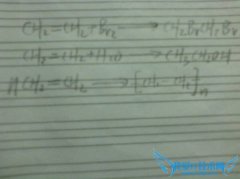 CH₂=CH₂+Br₂ → CH₂BrCH₂Br
CH₂=CH₂+H₂O → CH₃CH₂OH
nCH₂=CH₂ → [CH₂-CH₂]n